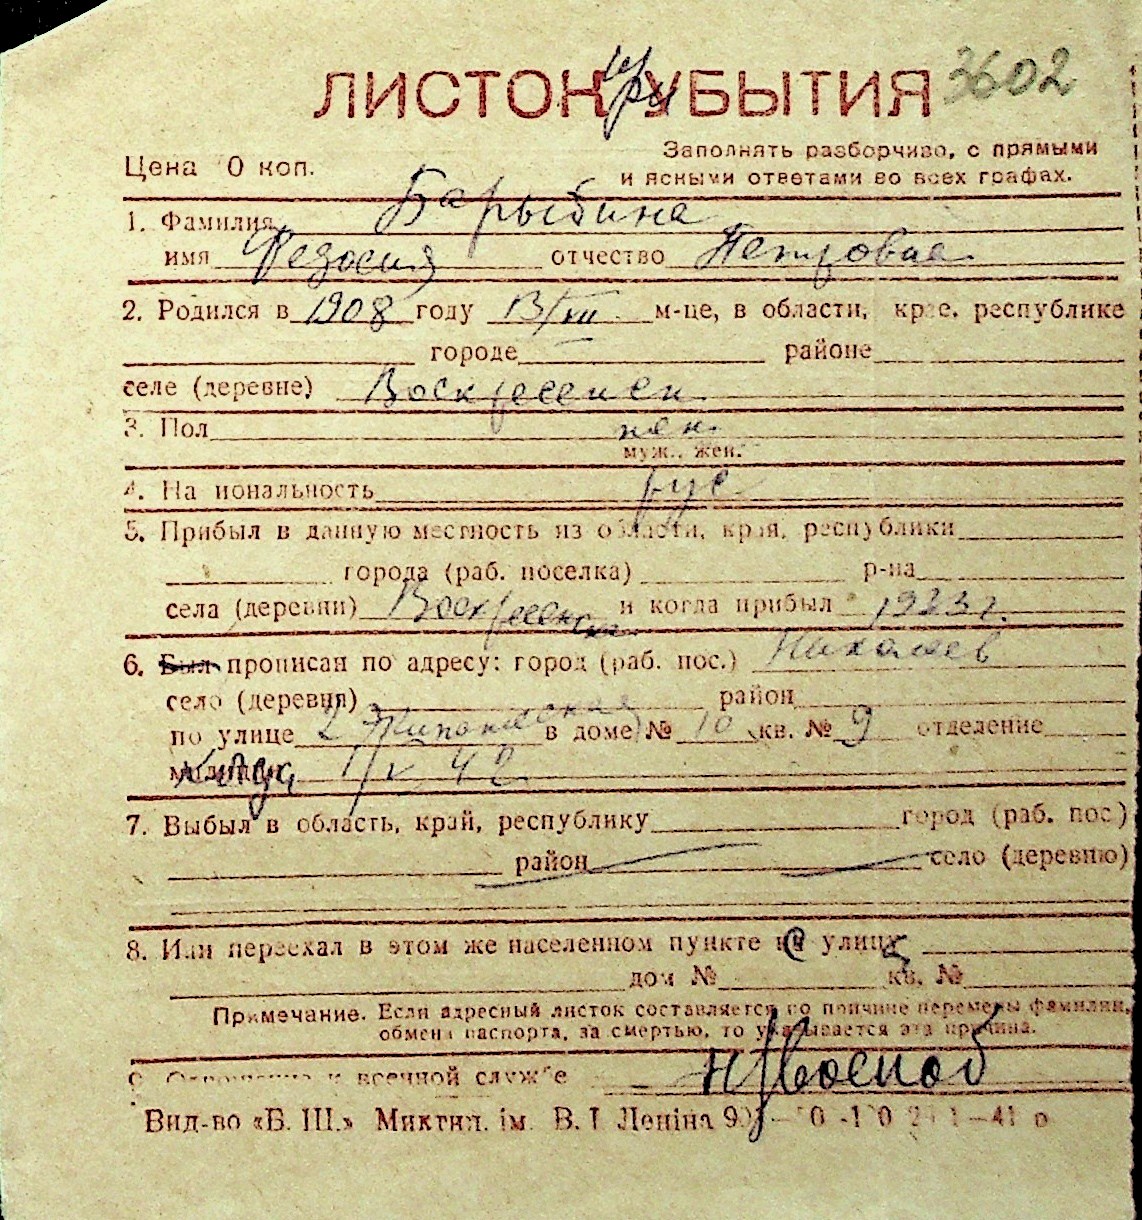 ЛИСТОК УБЫТИЯ 3602
при
Цена 0 коп.
Заполнять разборчиво, с прямыми
и ясными ответами во всех графах.
1. Фамилия Барыбина
имя Федосия отчество Петровна
2. Родился в 1908 году 13/VIII м-це, в области, крае, республике
городе районе
селе (деревне) Воскресенск
3. Пол жен.
муж., жен.
4. Национальность рус
5. Прибыл в данную местность из области, края, республики
города (раб. поселка) р-на
села (деревни) Воскресенска и когда прибыл 1923 г.
6. Был прописан по адресу: город (раб. пос.) Николаев
село (деревня) район
по улице 2 в доме № 10 кв. № 9 отделение
милиции 1/V 42
7. Выбыл в область, край, республику город (раб. пос.)
район село (деревню)
8. Или переехал в этом же населенном пункте на улицу
дом № кв. №
Примечание. Если адресный листок составляется по причине перемены фамилии,
обмена паспорта, за смертью, то указывается эта причина.
9. Отношение к военной службе
Вид-во «Б. Ш.» Миктип. ім. В. І. Леніна